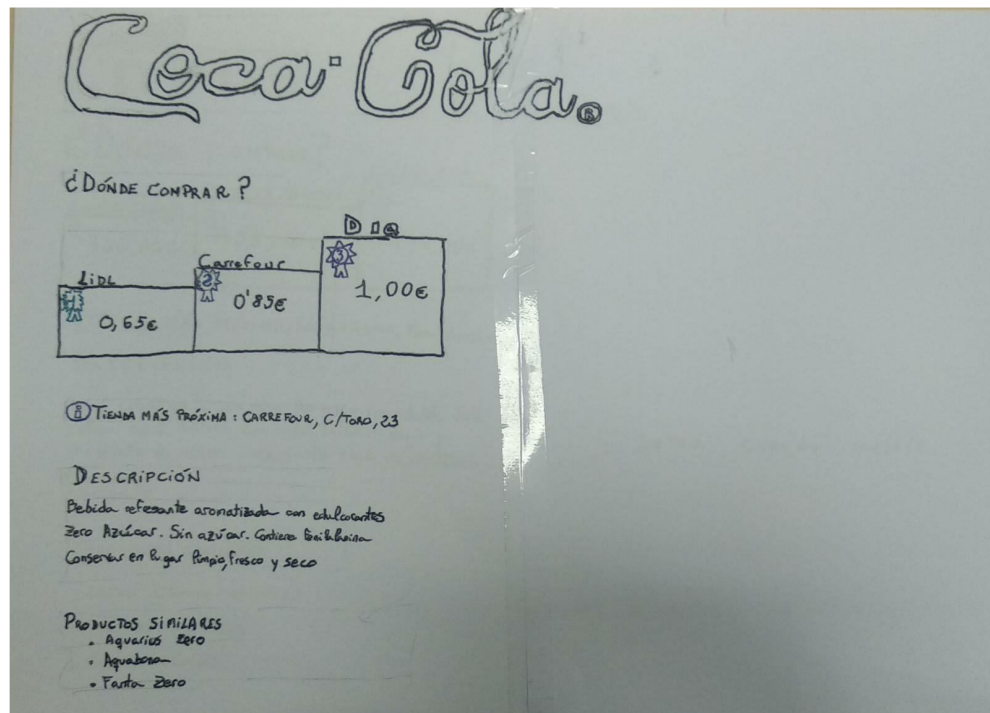 Coca-Cola®
¿DÓNDE COMPRAR?
Dia
Carrefour
LiDL
3
2
1
1,00€
0'85€
0,65€
i TIENDA MÁS PRÓXIMA: CARREFOUR, C/TORO, 23
DESCRIPCIÓN
Bebida refresante aromatizada con edulcorantes
Zero Azúcar. Sin azúcar. Contiene fenilalanina
Conservar en lugar limpio, fresco y seco
PRODUCTOS SIMILARES
• Aquarius Zero
• Aquabona
• Fanta Zero